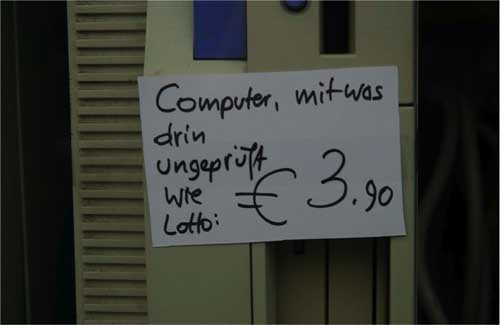 Computer, mit was
drin
ungeprüft
wie
Lotto: € 3.90